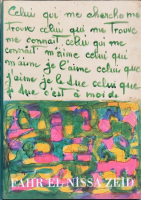 Celui qui me cherche me
trouve celui qui me trouve
me connait celui qui me
connait m'aime celui qui
m'aime je l'aime celui que
j'aime je le tue celui que
je tue c'est à moi de
FAHR EL NISSA ZEID